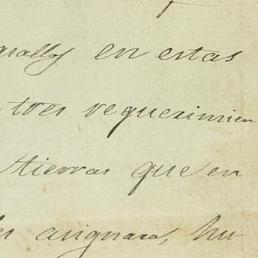 en estas
tres requerimien
tierras que en
asignara, hu